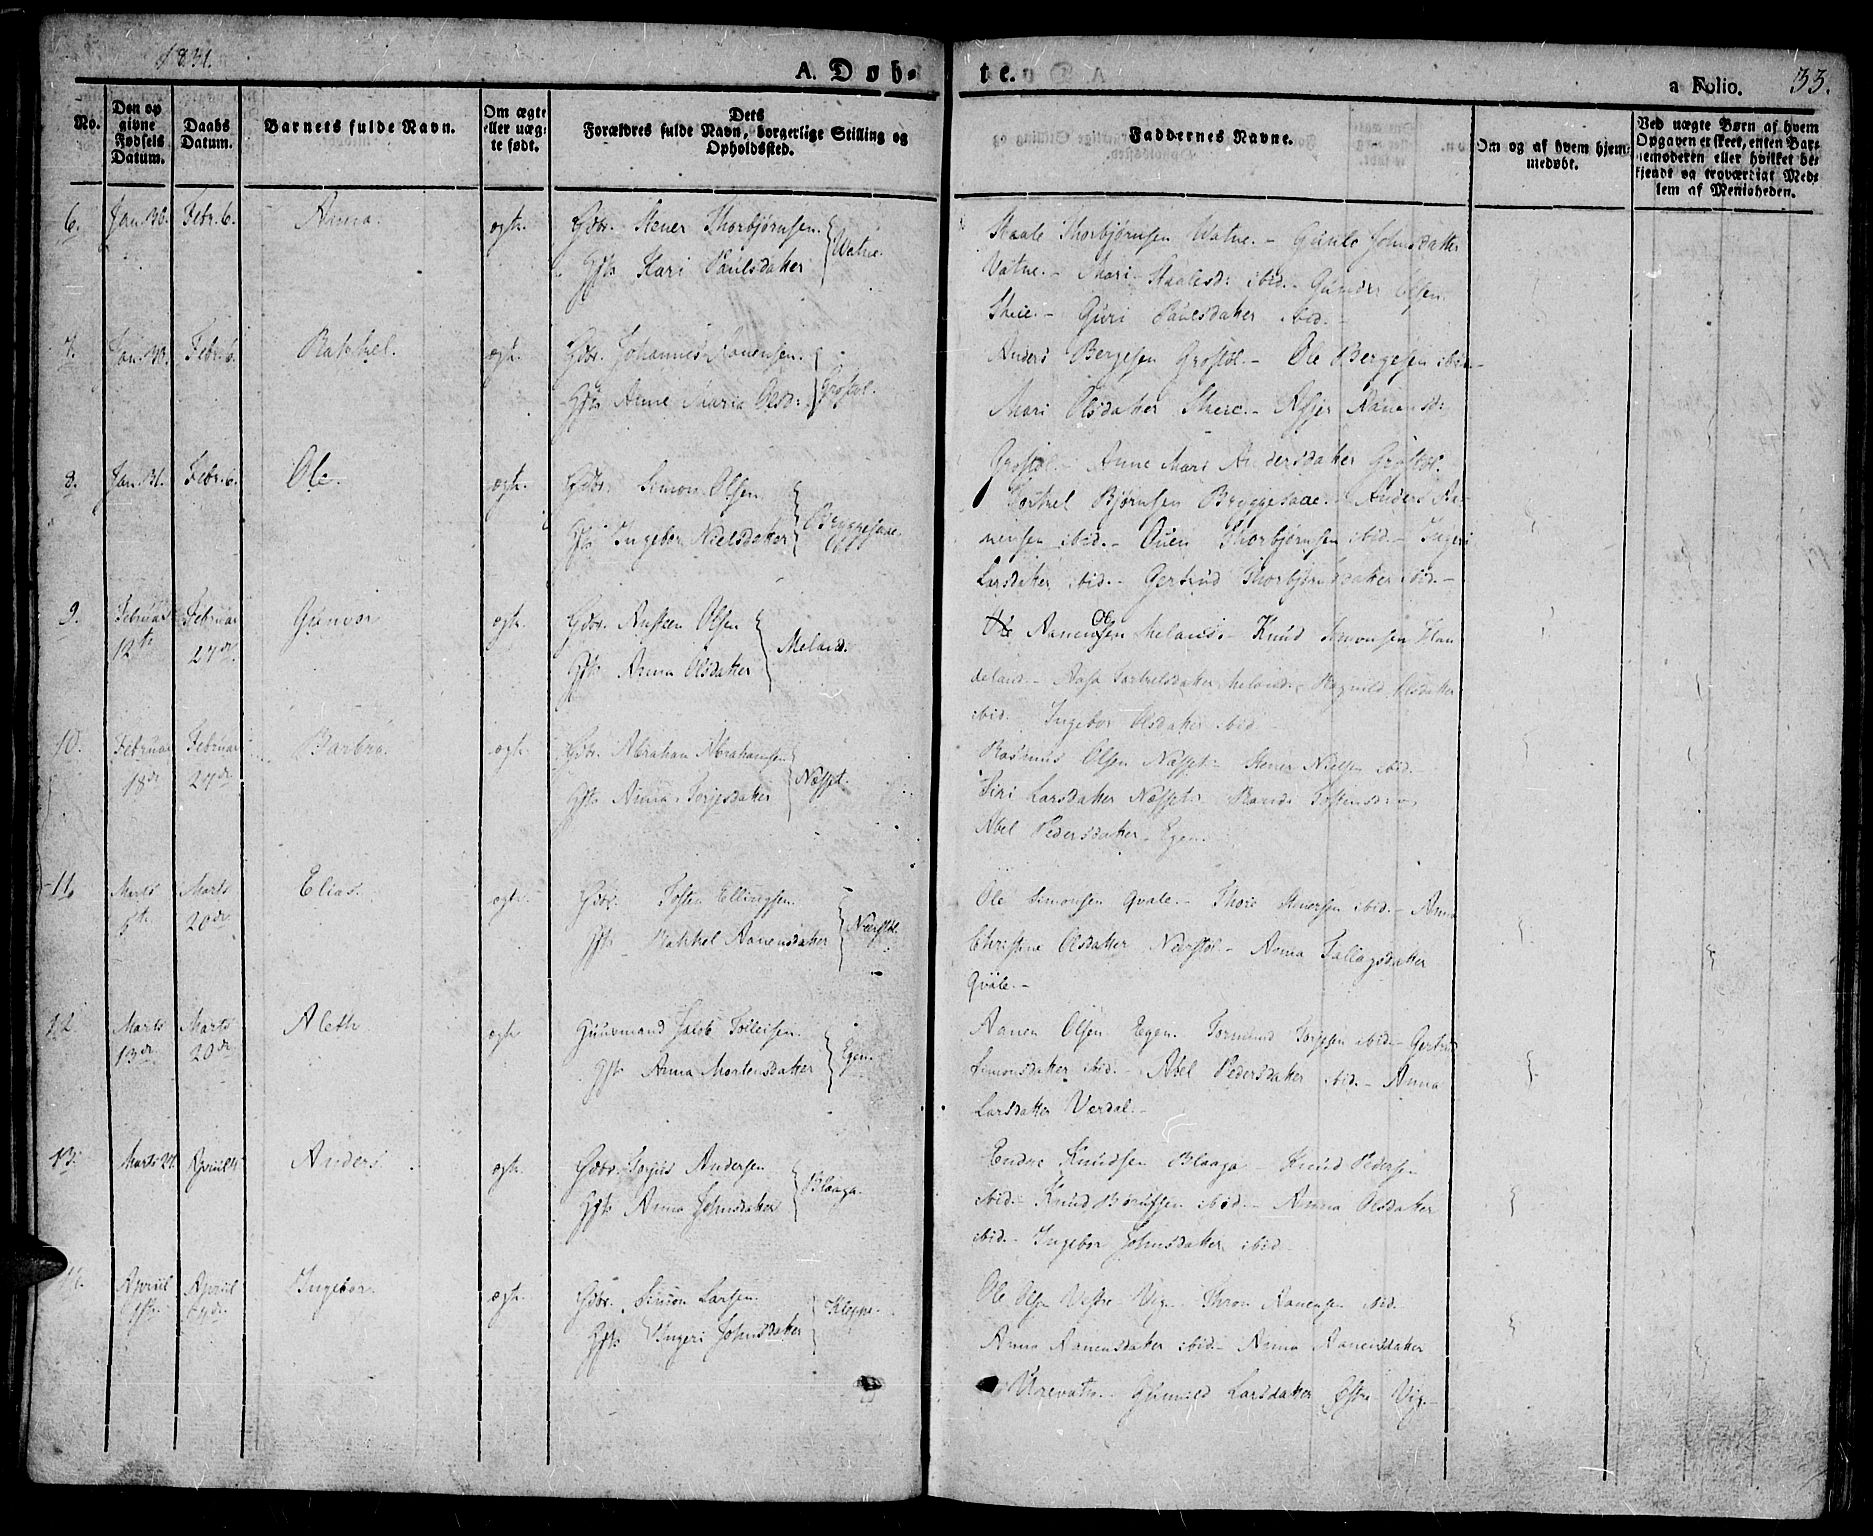 1831.
A. Døb-
te.
a Folio. 33.
No.
Den op
givne
Fødsels
Datum.
Daabs
Datum.
Barnets fulde Navn.
Om ægte
eller uæg-
te født.
Dets
Forældres fulde Navn, borgerlige Stilling og
Opholdssted.
Faddernes Navne.
Om og af hvem hjem-
medøbt.
Ved uægte Børn af hvem
Opgaven er skeet, enten Bar-
nemoderen eller hvilket be-
kjendt og troværdigt Med-
lem af Menigheden.
6. Jan. 30. Febr. 6. Anna. ægte. Gdbr. Stener Thorbjørnsen.
Gft. Kari Paulsdatter Watne.
Staale Thorbjørnsen Watne. - Gunild Johnsdatter
Vatne. - Mari Staalesd: ibid. - Gunder Olsen
Skeie. - Guri Paulsdatter ibid. -
7. Jan. 30. Febr. 6. Rakkel. ægte. Gdbr. Johannes Aanensen.
Gft. Anne Maria Olsd: Grostøl.
Anders Bergesen Grostøl. - Ole Bergesen ibid. -
Mari Olsdatter Skeie. - Aanensd:
Grostøl. - Anne Mari Andersdatter Grostøl.
8. Jan. 31. Febr. 6. Ole. ægte. Gdbr. Simon Olsen
Gft. Ingebor Nielsdatter Bryggesaae.
Torkel Bjørnsen Bryggesaae. - Anders Aa-
nensen ibid. - Ouen Thorbjørnsen ibid. - Ingeri
Larsdatter ibid. - Gertrud Thorbjørnsdatter ibid. -
9. Februar
12te Februar
27de Gunvor ægte. Gdbr. Austen Olsen
Gft. Anna Olsdatter Meland.
Aanen Olsen Meland. - Knud Simonsen Han
deland. - Aase Torkelsdatter Meland. - Ragnild Olsdatter
ibid. Ingebor Olsdatter ibid. -
10. Februar
18de Februar
27de Barbro. ægte. Gdbr. Abraham Abrahamsen
Gft. Anna Torjesdatter Næsset.
Rasmus Olsen Næsset. - Stener Nielsen ibid.
Siri Larsdatter Næsset. - Randi Tostensd:
Abel Pedersdatter Egen. -
11. Marts
5te Marts
20de Elias. ægte. Gdbr. Tosten Ellingsen.
Gft. Rakkel Aanensdatter Nerstøl
Ole Simonsen Qvale. - Thore Stenersen ibid. - Anna
Christine Olsdatter Nerstøl. - Anna Tallagsdatter
Qvale. -
12. Marts
13de Marts
20de Aleth ægte Jacob Tolleisen.
Gft. Anna Mortensdatter Egen.
Aanen Olsen Egen. Tormund Torjesen ibid. - Gertrud
Simonsdatter ibid. - Abel Pedersdatter ibid. - Anna
Larsdatter Værdal. -
13. Marts 21. Apriil 4. Anders ægte Gdbr. Torjus Andersen
Gft. Anna Johnsdatter Blaaga.
Endre Knudsen Blaaga - Knud Pedersen
ibid. - Knud ibid. - Anna Olsdatter
ibid. - Ingebor Johnsdatter ibid.
14. Apriil
Apriil
Ingebor. ægte. Gdbr. Simon Larsen.
Gft. Ingeri Johnsdatter Kleppe.
Ole Olsen Vestre Vig. Thron Aanensen ibid.
Anna Aanensdatter ibid. - Anna Aanensdatter
Urevatn. - Gunnild Larsdatter Østre Vig. -